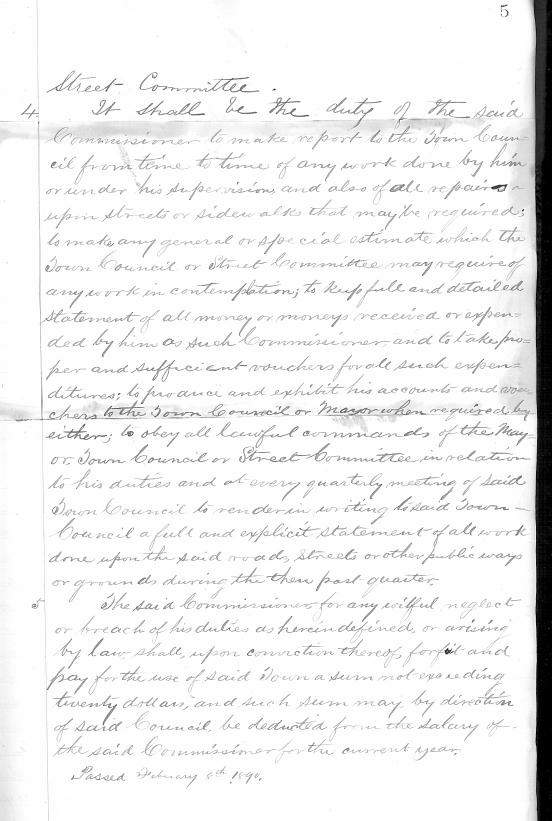 5
Street Committee.
4. It shall be the duty of the said
Commissioner to make report to the Town Coun-
cil from time to time of any work done by him
or under his supervision, and also of all repairs
upon streets or sidewalks that may be required;
to make any general or special estimate which the
Town Council or Street Committee may require of
any work in contemplation; to keep full and detailed
statement of all money or moneys received or expen-
ded by him as such Commissioner, and to take pro=
per and sufficient vouchers for all such expen=
ditures; to produce and exhibit his accounts and vou
chers to the Town Council or Mayor when required by
either; to obey all lawful commands of the May-
or, Town Council or Street Committee in relation
to his duties and at every quarterly meeting of said
Town Council to render in writing to said Town-
Council a full and explicit statement of all work
done upon the said roads, streets or other public ways
or grounds during the then past quarter.
5 The said Commissioner for any wilful neglect
or breach of his duties as herein defined, or arising
by law, shall, upon conviction thereof, forfeit and
pay for the use of said Town a sum not exceeding
twenty dollars, and such sum may by direction
of said Council, be deducted from the salary of
the said Commissioner for the current year.
Passed February 8th 1890.